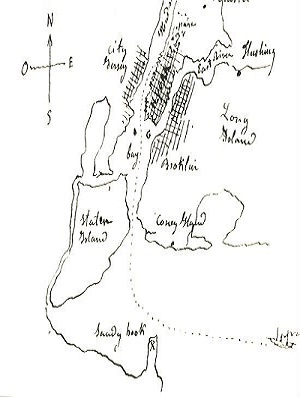 N
O
E
S
City
Jersey
East River
Flushing
Long
Island
G
Bay
Broklin
Staten
Island
Coney Island
Sandy hook